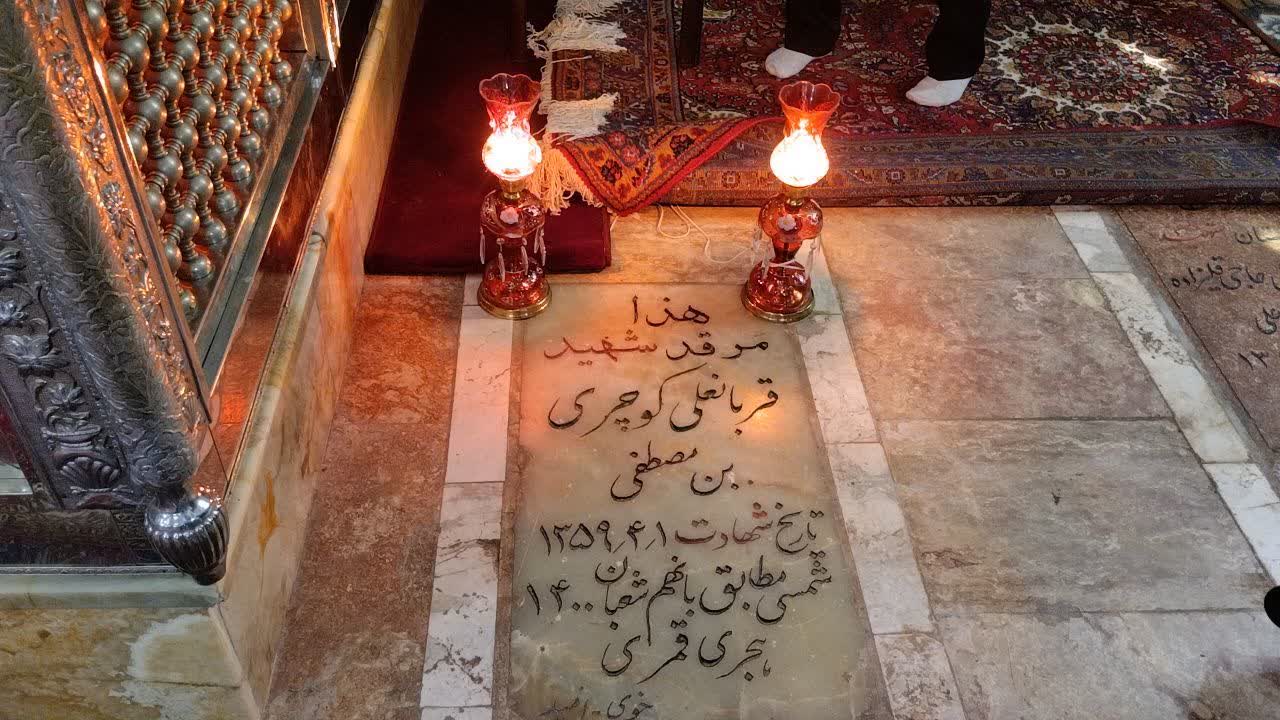 هذا
مرقد شهید
قربانعلی کوچری
بن مصطفی
تاریخ شهادت ۱۳۵۹٫۴٫۱
شمسی مطابق بانهم شعبان ۱۴۰۰
هجری قمری
خوی
حاجی قلیزاده